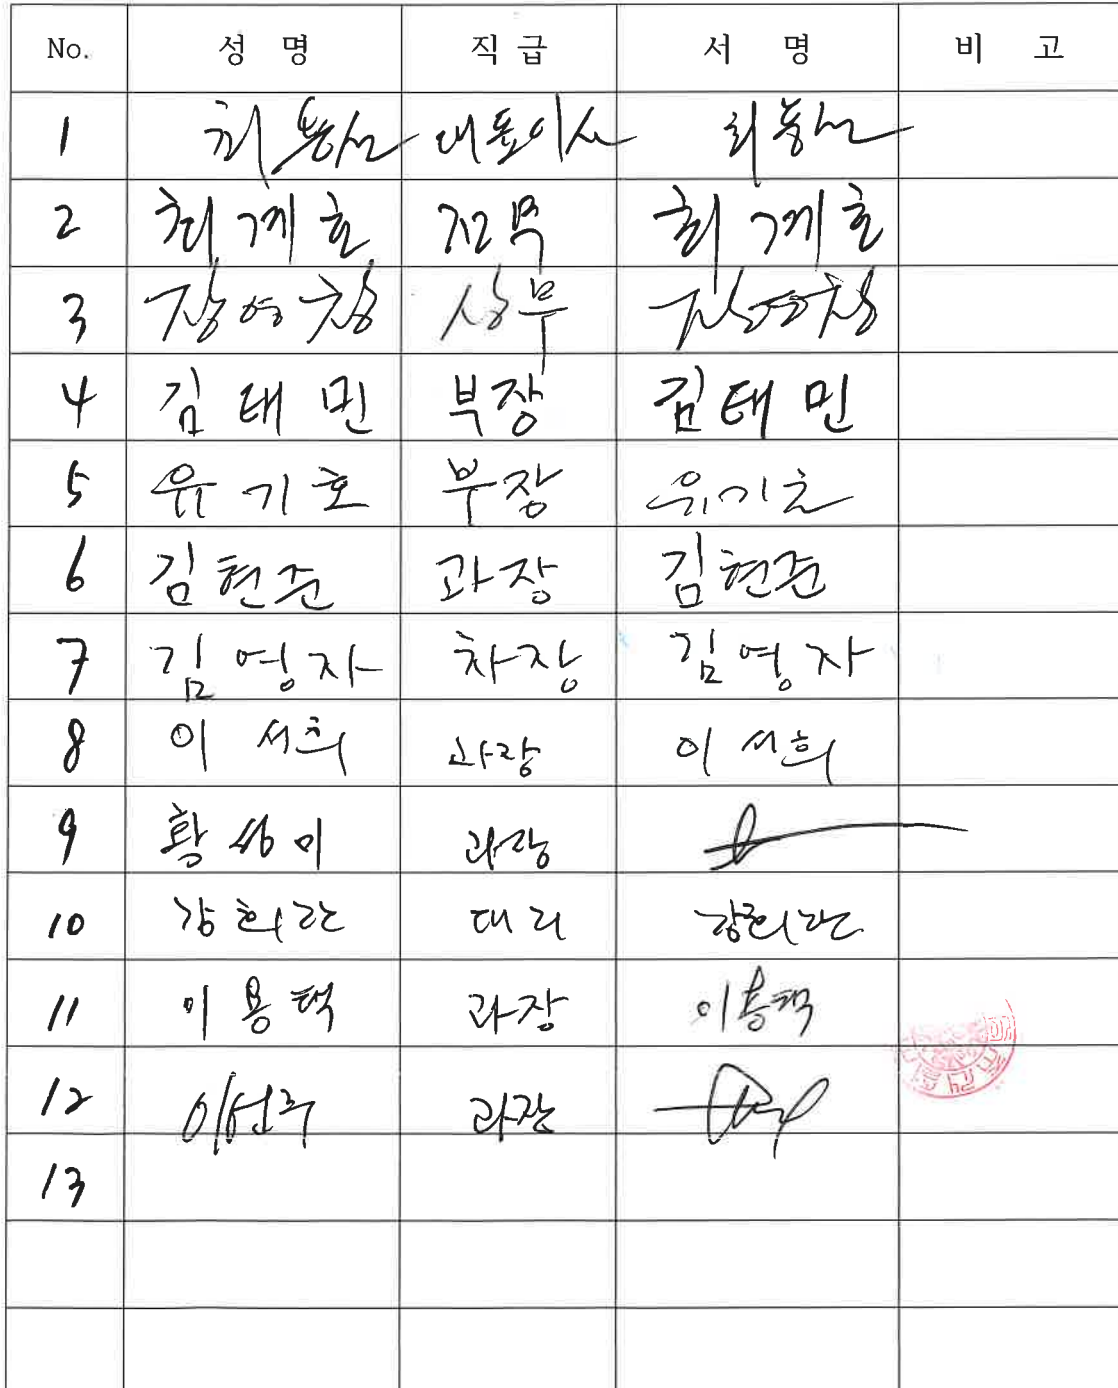 No. 성 명 직 급 서 명 비 고
1 최 대표이사 최
2 최계호 전무 최계호
3 장영창 상무 장영창
4 김태민 부장 김태민
5 유기호 부장 유기호
6 김현준 과장 김현준
7 김영자 차장 김영자
8 이서희 과장 이서희
9 황 미 과장
10 강희란 대리 강희란
11 이용택 과장 이용택
12 이 과장
13